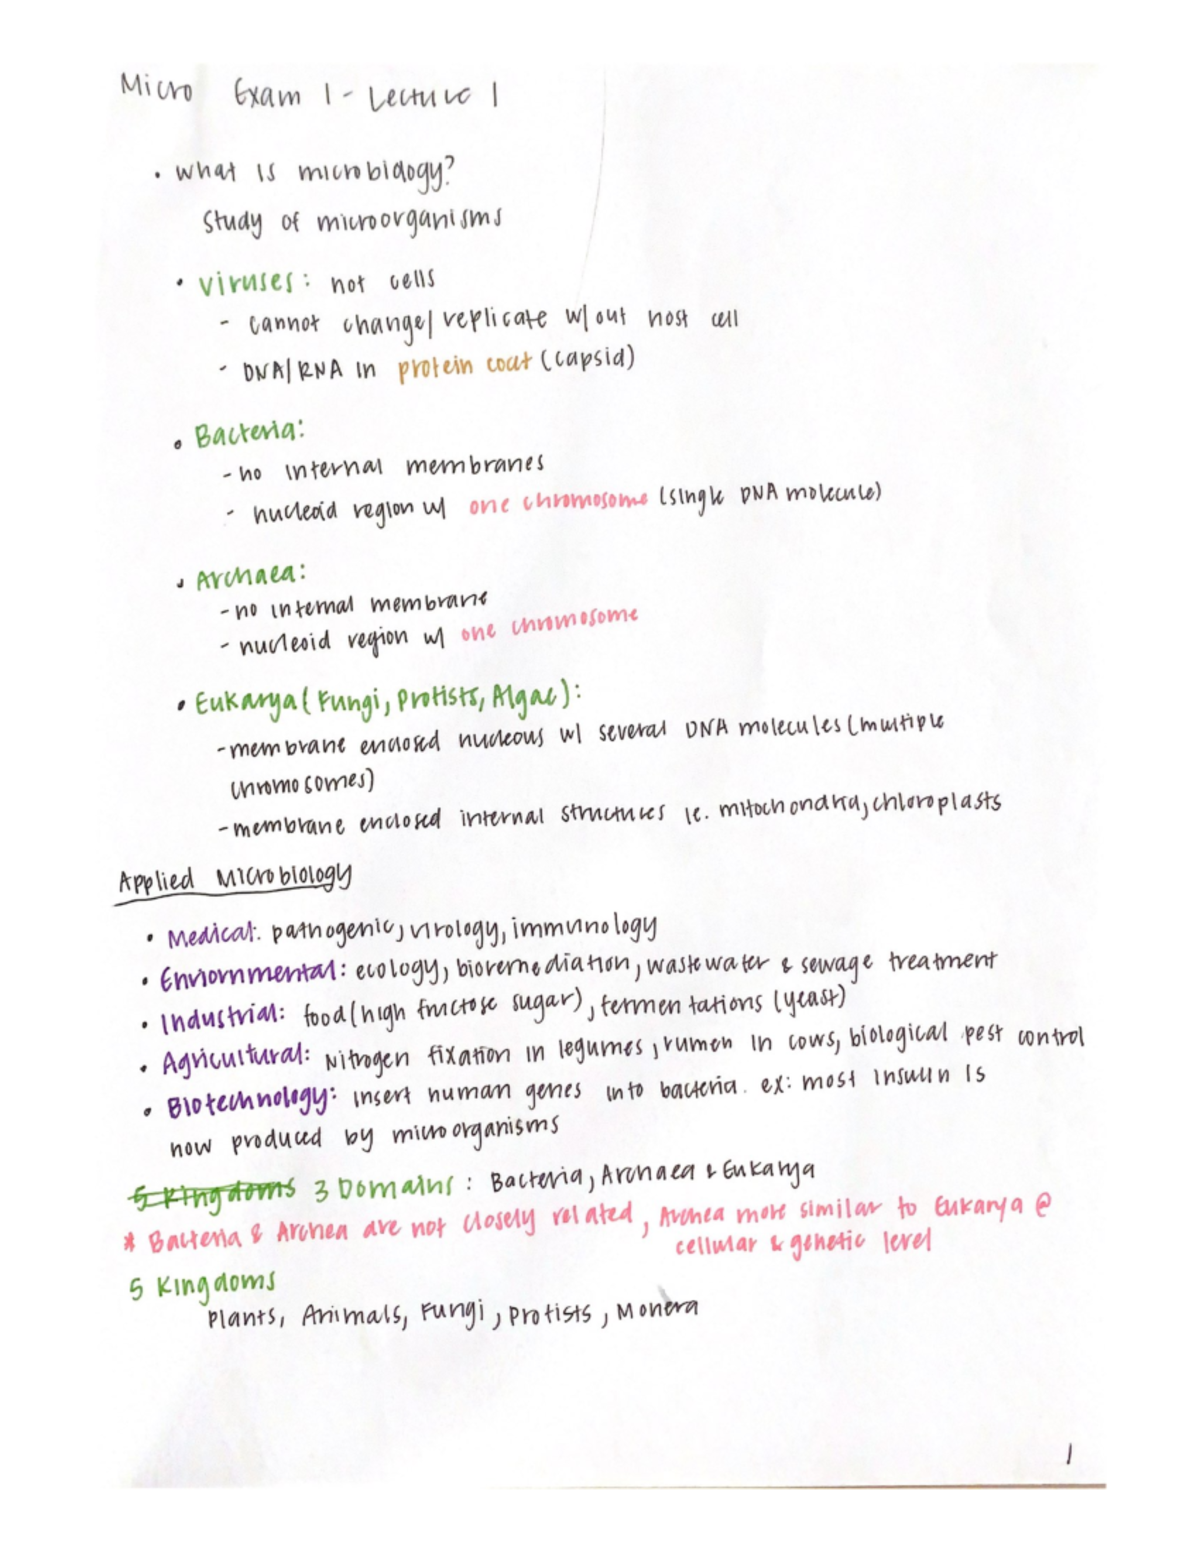 Micro Exam 1 - Lecture 1
• what is microbiology?
Study of microorganisms
• viruses: not cells
- cannot change/replicate w/out host cell
- DNA/RNA in protein coat (capsid)
• Bacteria:
- no internal membranes
- nucleoid region w/ one chromosome (single DNA molecule)
• Archaea:
- no internal membrane
- nucleoid region w/ one chromosome
• Eukarya (Fungi, Protists, Algae):
- membrane enclosed nucleous w/ several DNA molecules (multiple
chromosomes)
- membrane enclosed internal structures ie. mitochondria, chloroplasts
Applied Microbiology
• Medical: pathogenic, virology, immunology
• Enviornmental: ecology, bioremediation, wastewater & sewage treatment
• Industrial: food (high fructose sugar), fermentations (yeast)
• Agricultural: Nitrogen fixation in legumes, rumen in cows, biological pest control
• Biotechnology: insert human genes into bacteria. ex: most insulin is
now produced by microorganisms
5 Kingdoms 3 Domains: Bacteria, Archaea & Eukarya
* Bacteria & Archea are not closely related, Archea more similar to Eukarya @
cellular & genetic level
5 Kingdoms
Plants, Animals, Fungi, Protists, Monera
1